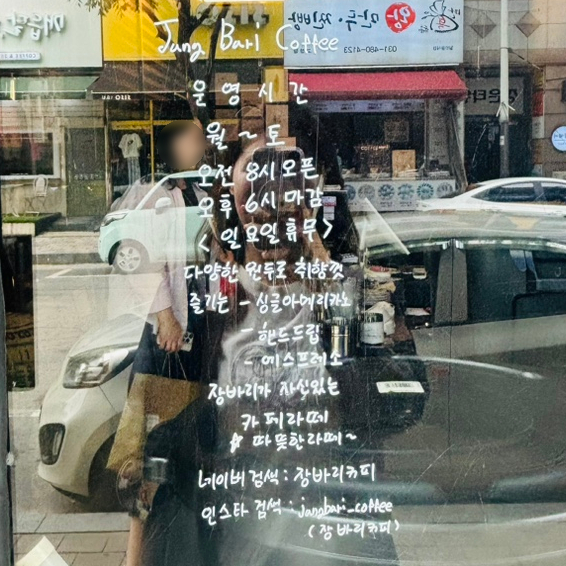 Jang Bari Coffee
운영시간
월 ~ 토
오전 8시 오픈
오후 6시 마감
< 일요일 휴무 >
다양한 원두로 취향껏
즐기는 - 싱글아메리카노
- 핸드드립
- 에스프레소
장바리가 자신있는
카페라떼
☆ 따뜻한라떼~
네이버검색 : 장바리커피
인스타 검색 : jangbari_coffee
(장바리커피)
왕만두 찐빵
031-480-4123